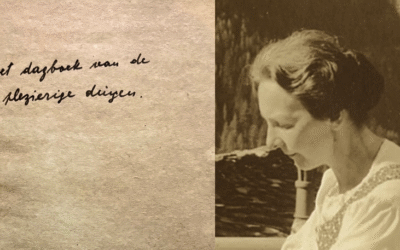 et dagboek van de
plezierige dingen.